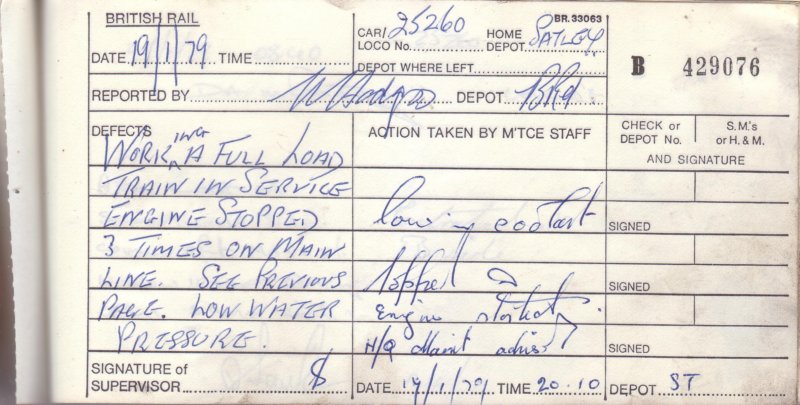 BRITISH RAIL
BR.33063
DATE 19/1/79 TIME
CAR/ LOCO No. 25260
HOME DEPOT SALTLEY
DEPOT WHERE LEFT
B 429076
REPORTED BY DEPOT
DEFECTS
ACTION TAKEN BY M'TCE STAFF
CHECK or DEPOT No.
S.M's or H. & M.
AND SIGNATURE
WORKING A FULL LOAD
TRAIN IN SERVICE
ENGINE STOPPED
3 TIMES ON MAIN
LINE. SEE PREVIOUS
PAGE. LOW WATER
PRESSURE.
low in coolant
topped
Engine
H/Q Maint advise
SIGNED
SIGNED
SIGNATURE of SUPERVISOR
DATE 19/1/79 TIME 20.10 DEPOT ST